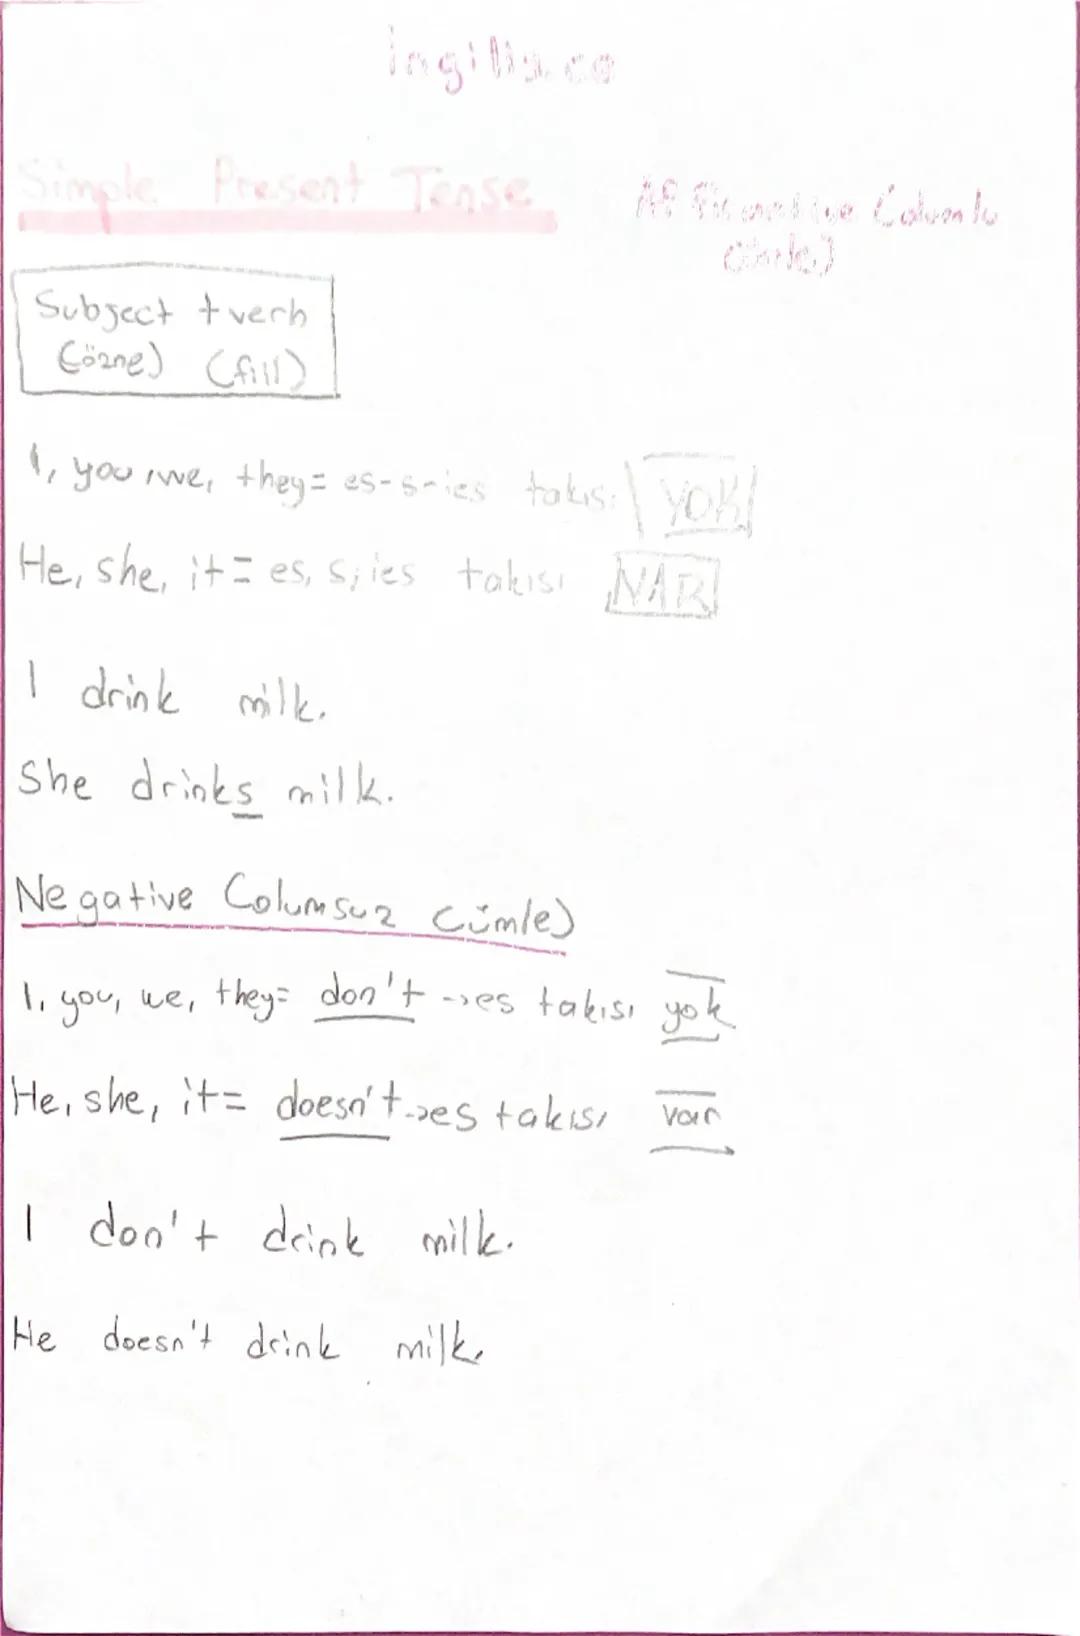 ingilizce
Simple Present Tense
Affirmative (olumlu
cümle)
Subject + verb
(özne) (fiil)
I, you, we, they= es-s-ies takısı YOK
He, she, it= es, s, ies takısı VAR
I drink milk.
She drinks milk.
Negative (olumsuz cümle)
I, you, we, they= don't →es takısı yok
He, she, it= doesn't→es takısı var
I don't drink milk.
He doesn't drink milk.